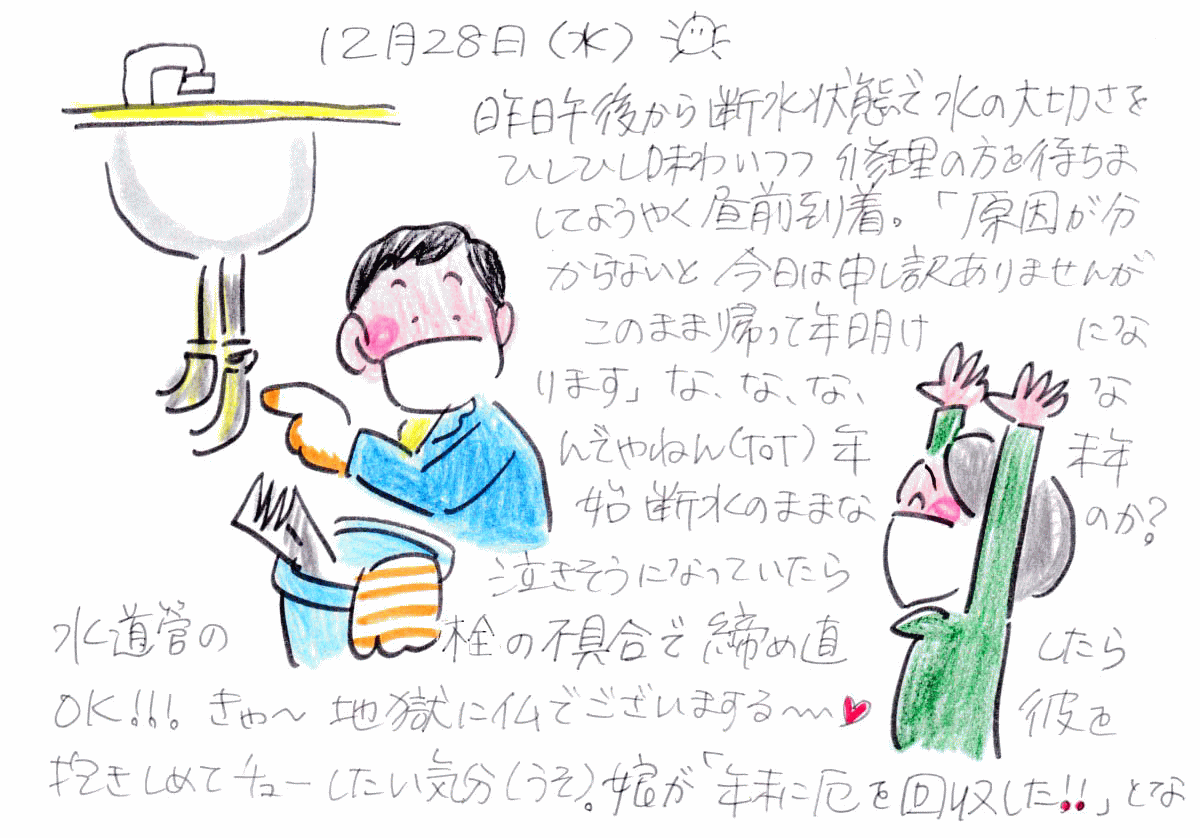 12月28日(水)
昨日午後から断水状態で水の大切さを
ひしひし味わいつつ 修理の方を待ちま
してようやく昼前到着。「原因が分
からないと今日は申し訳ありませんが
このまま帰って年明け にな
ります」な、な、な、 な
んでやねん(ToT) 年 末年
始断水のままな のか?
泣きそうになっていたら
水道管の 栓の不具合で締め直 したら
OK!!! きゃ〜 地獄に仏でございまする〜 彼を
抱きしめてチューしたい気分(うそ)。娘が「年末に厄を回収した!!」とな